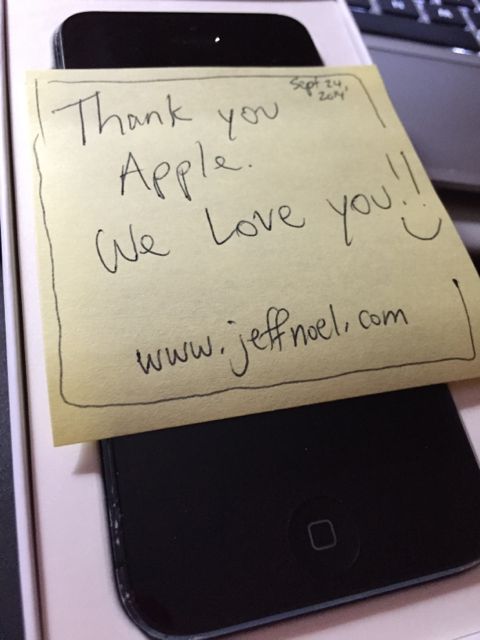 Sept 24
2014
Thank you
Apple.
We Love you!!
www.jeffnoel.com